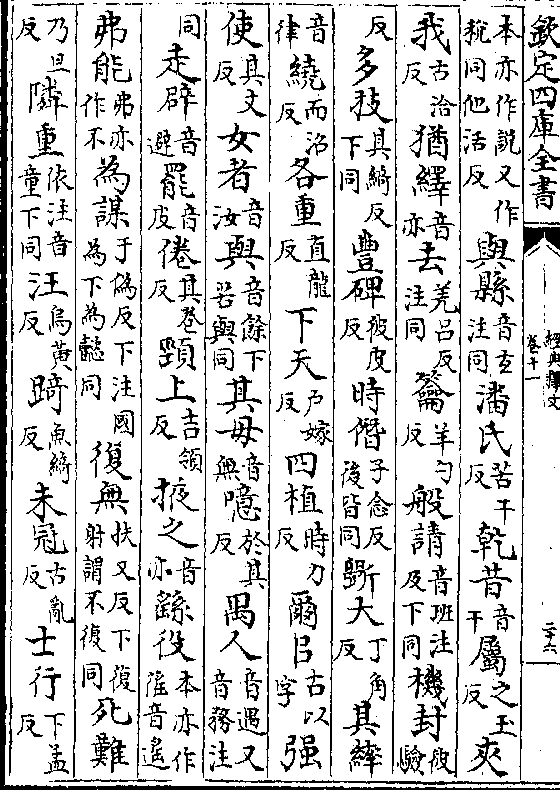 欽定四庫全書
經典釋文
卷十一
二十六
本亦作說又作稅同他活反與縣音玄注同潘氏苦干反乾昔音干屬之玉反夾
我古洽反猶繹音亦去羌呂反注同籥羊勺反般請音班注及下同機封彼驗
反多技其綺反下同豐碑彼皮反時僭子念反後皆同斵大丁角反其繂
音律繞而沼反各重直龍反下天户嫁反四植時力反爾㠯古以字强
使其丈反女者音汝與音餘下若與同其毋音無噫於其反禺人音遇又音務注
同走辟音避罷音皮倦其卷反頸上吉領反掖之音亦繇役本亦作傜音遙
弗能弗亦作不為謀于偽反下注國為下為懿同復無扶又反下復射謂不復同死難
乃旦反隣重依注音童下同汪烏黄反踦魚綺反未冠古亂反士行下孟反